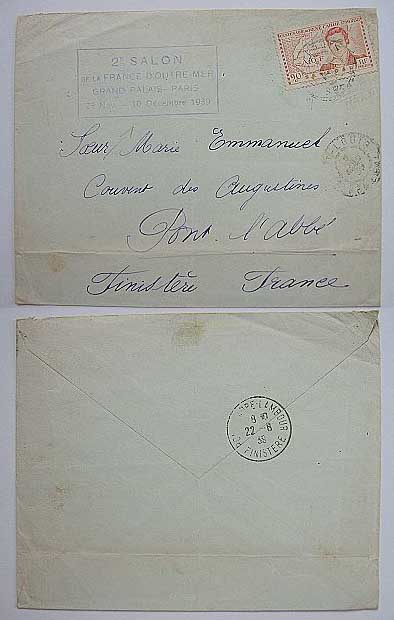 2e SALON
DE LA FRANCE D'OUTRE-MER
GRAND PALAIS - PARIS
29 Nov. - 10 Décembre 1939
90c
Sœur Marie Emmanuel
Couvent des Augustines
Pont l'abbé
Finistère France
LAMBOUR
22-8
39
FINISTERE